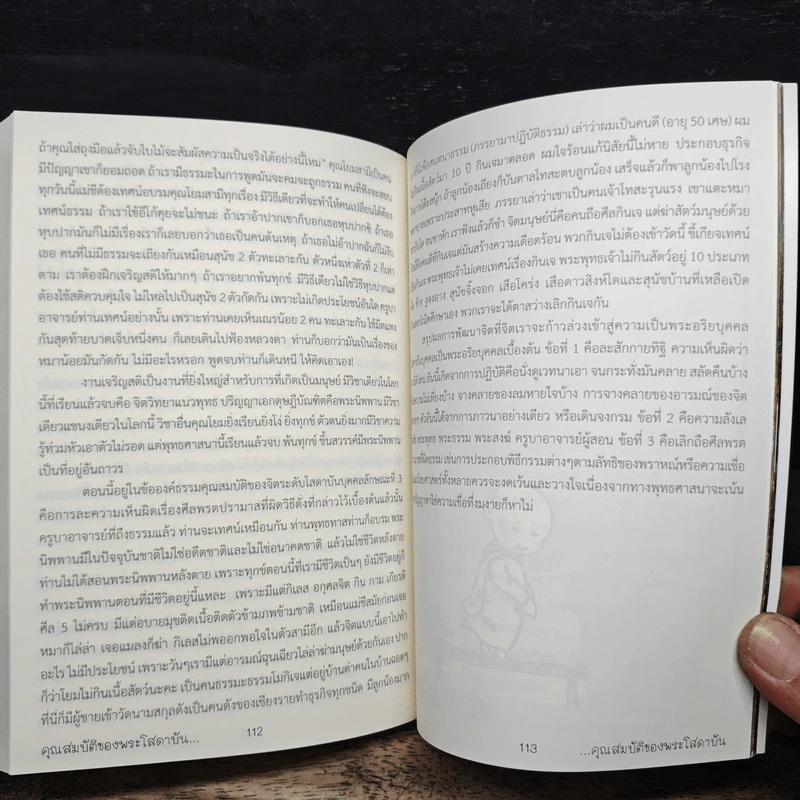 ถ้าคุณใส่ถุงมือแล้วจับใบไม้จะสัมผัสความเป็นจริงได้อย่างนี้ไหม" คุณโยมสามีเป็นคน
มีปัญญาเขาก็ยอมถอด ถ้าเรามีธรรมะในการพูดมันจะคมจะถูกธรรม คนที่ฟังจะสยบ
ทุกวันนี้แม่ชีต้องเทศน์อบรมคุณโยมสามีทุกเรื่อง มีวิธีเดียวที่จะทำให้คนเปลี่ยนได้ต้อง
เทศน์ธรรม ถ้าเราใช้อีโก้คุยจะไม่ชนะ ถ้าเราอ้าปากเขาก็บอกเธอหุบปากซิ ถ้าเธอ
หุบปากมันก็ไม่มีเรื่องเราก็เลยบอกว่าเธอเป็นคนต้นเหตุ ถ้าเธอไม่อ้าปากฉันก็ไม่รับ
เธอ คนที่ไม่มีธรรมะจะเถียงกันเหมือนสุนัข 2 ตัวทะเลาะกัน ตัวหนึ่งเห่าตัวที่ 2 ก็เห่า
ตาม เราต้องฝึกเจริญสติให้มากๆ ถ้าเราอยากพ้นทุกข์ มีวิธีเดียวไม่ใช่วิธีหุบปากแต่
ต้องใช้สติควบคุมใจ ไม่ไหลไปเป็นสุนัข 2 ตัวกัดกัน เพราะไม่เกิดประโยชน์อันใด ครูบา
อาจารย์ท่านเทศน์อย่างนั้น เพราะท่านเคยเห็นเณรน้อย 2 คน ทะเลาะกัน ใช้มีดแทง
กันสุดท้ายบาดเจ็บหนึ่งคน ก็เลยเดินไปฟ้องหลวงตา ท่านก็บอกว่ามันเป็นเรื่องของ
หมาน้อยมันกัดกัน ไม่มีอะไรหรอก พูดจบท่านก็เดินหนี ให้คิดเอาเอง!
งานเจริญสติเป็นงานที่ยิ่งใหญ่สำหรับการที่เกิดเป็นมนุษย์ มีวิชาเดียวในโลก
นี้ที่เรียนแล้วจบคือ จิตวิทยาแนวพุทธ ปริญญาเอกดุษฎีบัณฑิตคือพระนิพพาน มีวิชา
เดียวแขนงเดียวในโลกนี้ วิชาอื่นคุณโยมยิ่งเรียนยิ่งโง่ ยิ่งทุกข์ ตัวตนยิ่งมากมีวิชาความ
รู้ท่วมหัวเอาตัวไม่รอด แต่พุทธศาสนานี้เรียนแล้วจบ พ้นทุกข์ ขึ้นสวรรค์มีพระนิพพาน
เป็นที่อยู่อันถาวร
ตอนนี้อยู่ในข้อองค์ธรรมคุณสมบัติของจิตระดับโสดาบันบุคคลลักษณะที่ 3
คือการละความเห็นผิดเรื่องศีลพรตปรามาสที่ผิดวิธีดั่งที่กล่าวไว้เบื้องต้นแล้วนั้น
ครูบาอาจารย์ที่ถึงธรรมแล้ว ท่านจะเทศน์เหมือนกัน ท่านพุทธทาสท่านก็อบรม พระ
นิพพานมีในปัจจุบันชาติไม่ใช่อดีตชาติและไม่ใช่อนาคตชาติ แล้วไม่ใช่ชีวิตหลังตาย
ท่านไม่ได้สอนพระนิพพานหลังตาย เพราะทุกข์ตอนนี้ที่เรามีชีวิตเป็นๆ ยังมีชีวิตอยู่ก็
ทำพระนิพพานตอนที่มีชีวิตอยู่นี้แหละ เพราะมีแต่กิเลส อกุศลจิต กิน กาม เกียรติ
ศีล 5 ไม่ครบ มีแต่อบายมุขติดเนื้อติดตัวข้ามภพข้ามชาติ เหมือนแม่ชีสมัยก่อนเจอ
หมาก็ไล่ล่า เจอแมลงก็ฆ่า กิเลสไม่พออกพอใจในตัวสามีอีก แล้วจิตแบบนี้เอาไปทำ
อะไร ไม่มีประโยชน์ เพราะวันๆเรามีแต่อารมณ์ฉุนเฉียวไล่ล่าฆ่ามนุษย์ด้วยกันเอง ปาก
ก็ว่าโยมไม่กินเนื้อสัตว์นะคะ เป็นคนธรรมะธรรมโมกิเจแต่อยู่บ้านด่าคนในบ้านฉอดๆ
ที่นี่ก็มีผู้ชายเข้าวัดนามสกุลดังเป็นคนดังของเชียงรายทำธุรกิจทุกชนิด มีลูกน้องมาก
คุณสมบัติของพระโสดาบัน... 112
สนทนาธรรม (ภรรยามาปฏิบัติธรรม) เล่าว่าผมเป็นคนดี (อายุ 50 เศษ) ผม
10 ปี กินเจมาตลอด ผมใจร้อนแก้นิสัยนี้ไม่หาย ประกอบธุรกิจ
ถ้าลูกน้องเถียงก็บันดาลโทสะตบลูกน้อง เสร็จแล้วก็พาลูกน้องไปโรง
พยาบาลเพราะประสาทหูเสีย ภรรยาเล่าว่าเขาเป็นคนเจ้าโทสะรุนแรง เขาเตะหมา
จนขาหัก เราฟังแล้วก็ขำ จิตมนุษย์นี่คือคนถือศีลกินเจ แต่ฆ่าสัตว์มนุษย์ด้วย
คนที่กินเจแต่มันสร้างความเดือดร้อน พวกกินเจไม่ต้องเข้าวัดนี้ ขี้เกียจเทศน์
กินเจ พระพุทธเจ้าไม่เคยเทศน์เรื่องกินเจ พระพุทธเจ้าไม่กินสัตว์อยู่ 10 ประเภท
ช้าง งูจงอาง สุนัขจิ้งจอก เสือโคร่ง เสือดาวสิงห์โตและสุนัขบ้านที่เหลือเปิด
ศึกษาเอง พวกเราจะได้ตาสว่างเลิกกินเจกัน
สรุปผลการพัฒนาจิตที่จิตเราจะก้าวล่วงเข้าสู่ความเป็นพระอริยบุคคล
เป็นพระอริยบุคคลเบื้องต้น ข้อที่ 1 คือละสักกายทิฐิ ความเห็นผิดว่า
อันนี้เกิดจากการปฏิบัติคือนั่งดูเวทนาเอา จนกระทั่งมันคลาย สลัดคืนบ้าง
ไม่เที่ยงบ้าง จางคลายของลมหายใจบ้าง การจางคลายของอารมณ์ของจิต
ตัวอันนี้ได้จากการภาวนาอย่างเดียว หรือเดินจงกรม ข้อที่ 2 คือความลังเล
พระพุทธ พระธรรม พระสงฆ์ ครูบาอาจารย์ผู้สอน ข้อที่ 3 คือเลิกถือศีลพรต
ผิดธรรม เช่นการประกอบพิธีกรรมต่างๆตามลัทธิของพราหณ์หรือความเชื่อ
ไสยศาสตร์ทั้งหลายควรจะงดเว้นและวางใจเนื่องจากทางพุทธศาสนาจะเน้น
ปัญญาหาใช่ความเชื่อที่งมงายก็หาไม่
113 ...คุณสมบัติของพระโสดาบัน